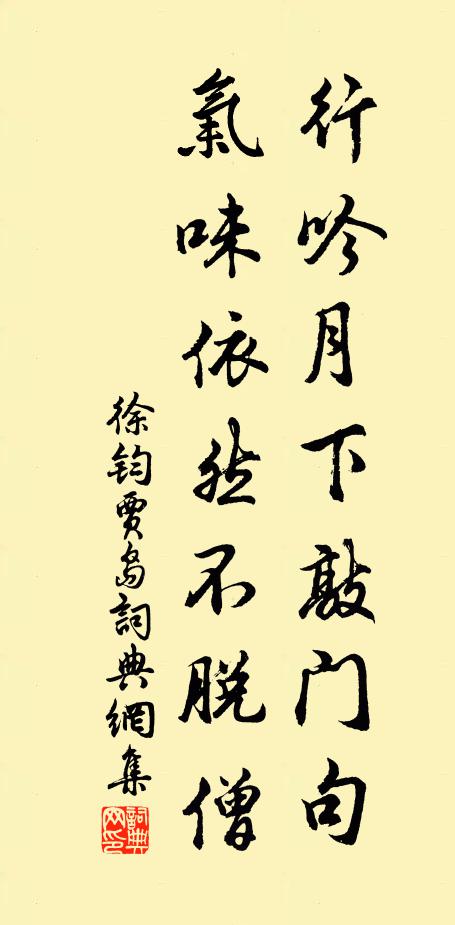 行吟月下敲门句
氣味依然不脱僧
徐鈞賈島詞典網集
詞典网印